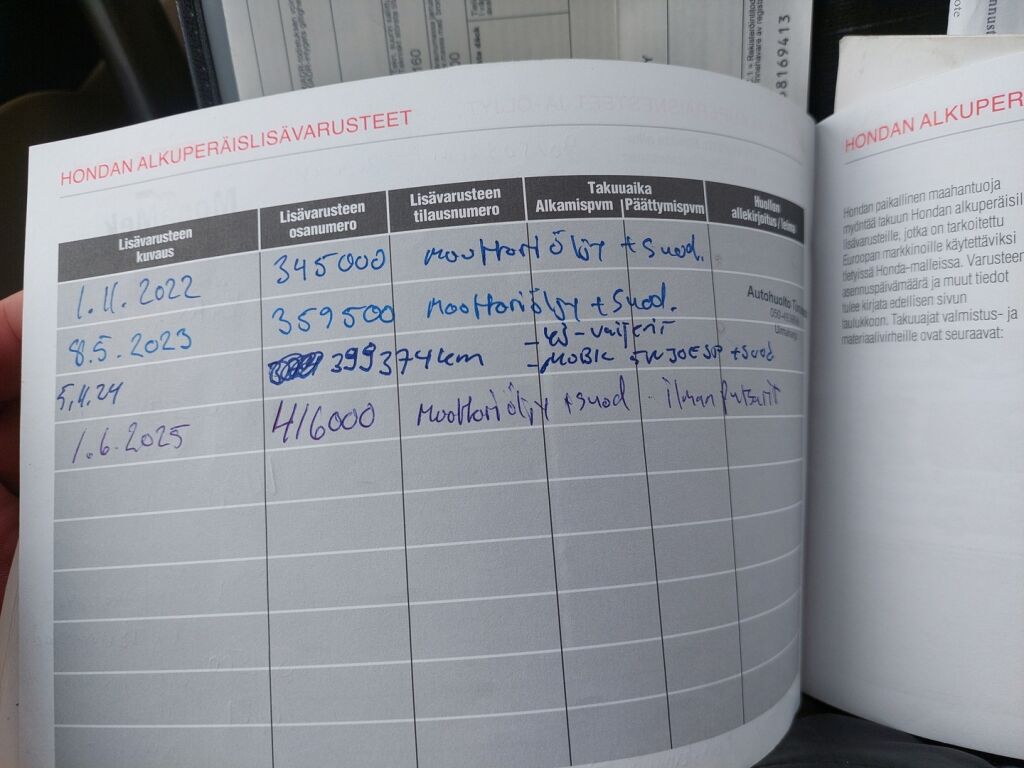 HONDAN ALKUPERÄISLISÄVARUSTEET
Lisävarusteen kuvaus
Lisävarusteen osanumero
Lisävarusteen tilausnumero
Takuuaika
Alkamispvm Päättymispvm
Huollon allekirjoitus / leima
1.11.2022 345000 Moottoriöljy + suod.
8.5.2023 359500 Moottoriöljy + suod.
Autohuolto
399374 km - MOBIL 5W30 ESP + suod
1.6.2025 416000 Moottoriöljy + suod ilman
HONDAN ALKUPER
Hondan paikallinen maahantuoja
myöntää takuun Hondan alkuperäisil
lisävarusteille, jotka on tarkoitettu
Euroopan markkinoille käytettäviksi
tietyissä Honda-malleissa. Varusteen
asennuspäivämäärä ja muut tiedot
tulee kirjata edellisen sivun
taulukkoon. Takuuajat valmistus- ja
materiaalivirheille ovat seuraavat:
68169413